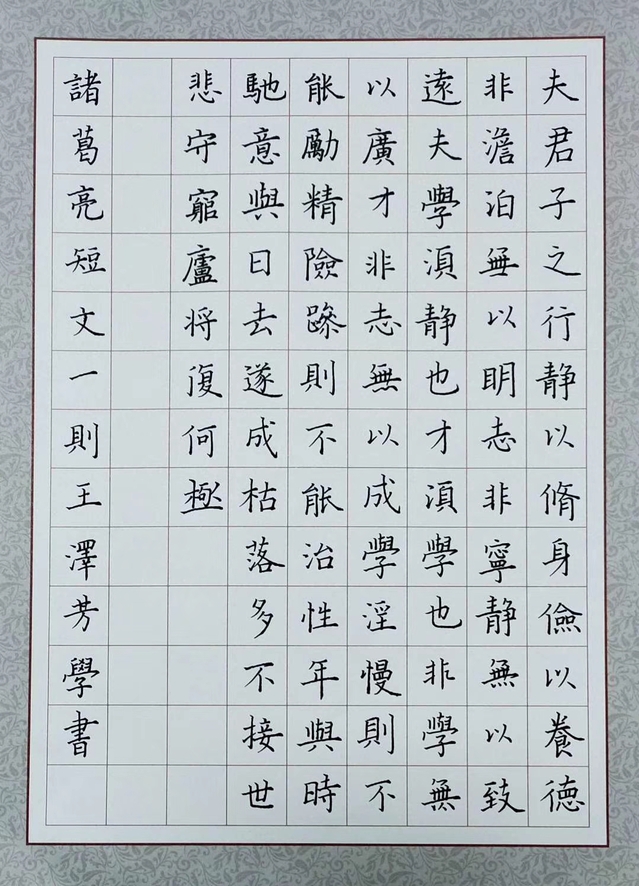 夫君子之行静以脩身儉以養德
非澹泊無以明志非寧静無以致
遠夫學湏静也才湏學也非學無
以廣才非志無以成學淫慢則不
能勵精險躁則不能治性年與時
馳意與日去遂成枯落多不接世
悲守窮廬将復何極
諸葛亮短文一則王澤芳學書